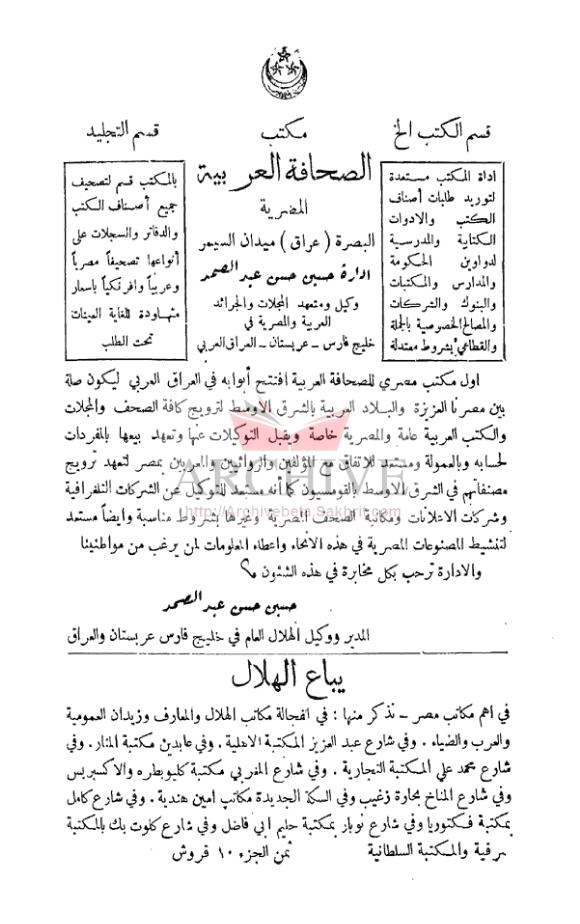 قسم الكتب الخ
مكتب
قسم التجليد
اداة المكتب مستعدة
لتوريد طلبات أصناف
الكتب والادوات
الكتابية والمدرسية
لدواوين الحكومة
والمدارس والمكتبات
والبنوك والشركات
والمصالح الخصوصية بالجملة
والقطاعي بشروط معتدلة
الصحافة العربية
المصرية
البصرة ( عراق ) ميدان السيمر
ادارة حسين حسن عبد الصمد
وكيل ومتعهد المجلات والجرائد
العربية والمصرية في
خليج فارس – عربستان – العراق العربي
بالمكتب قسم لتصحيف
جميع أصناف الكتب
والدفاتر والسجلات على
أنواعها تصحيفاً مصرياً
وعربياً وافرنكياً باسعار
متهاودة للغاية العينات
تحت الطلب
اول مكتب مصري للصحافة العربية افتتح أبوابه في العراق العربي ليكون صلة
بين مصرنا العزيزة والبلاد العربية بالشرق الاوسط لترويج كافة الصحف والمجلات
والكتب العربية عامة والمصرية خاصة ويقبل التوكيلات عنها وتعهد بيعها بالمفردات
لحسابه وبالعمولة ومستعد للاتفاق مع المؤلفين والروائيين والمعربين بمصر لتعهد ترويج
مصنفاتهم في الشرق الاوسط بالقومسيون كما أنه مستعد للتوكيل عن الشركات التلغرافية
وشركات الاعلانات ومكاتبة الصحف المصرية وغيرها بشروط مناسبة وايضاً مستعد
لتنشيط المصنوعات المصرية في هذه الانحاء واعطاء المعلومات لمن يرغب من مواطنينا
والادارة ترحب بكل مخابرة في هذه الشئون
ARCHIVE
http://Archivebeta.Sakhrit.com
حسين حسن عبد الصمد
المدير ووكيل الهلال العام في خليج فارس عربستان والعراق
يباع الهلال
في اهم مكاتب مصر – نذكر منها : في الفجالة مكاتب الهلال والمعارف وزيدان العمومية
والعرب والضياء . وفي شارع عبد العزيز المكتبة الاهلية . وفي عابدين مكتبة المنار. وفي
شارع محمد علي المكتبة التجارية . وفي شارع المغربي مكتبة كليوبطره والاكسبريس
وفي شارع المناخ بحارة زغيب وفي السكة الجديدة مكاتب امين هندية . وفي شارع كامل
بمكتبة فكتوريا وفي شارع نوبار بمكتبة حليم ابي فاضل وفي شارع كلوت بك بالمكتبة
الشرقية والمكتبة السلطانية
ثمن الجزء ١٠ قروش